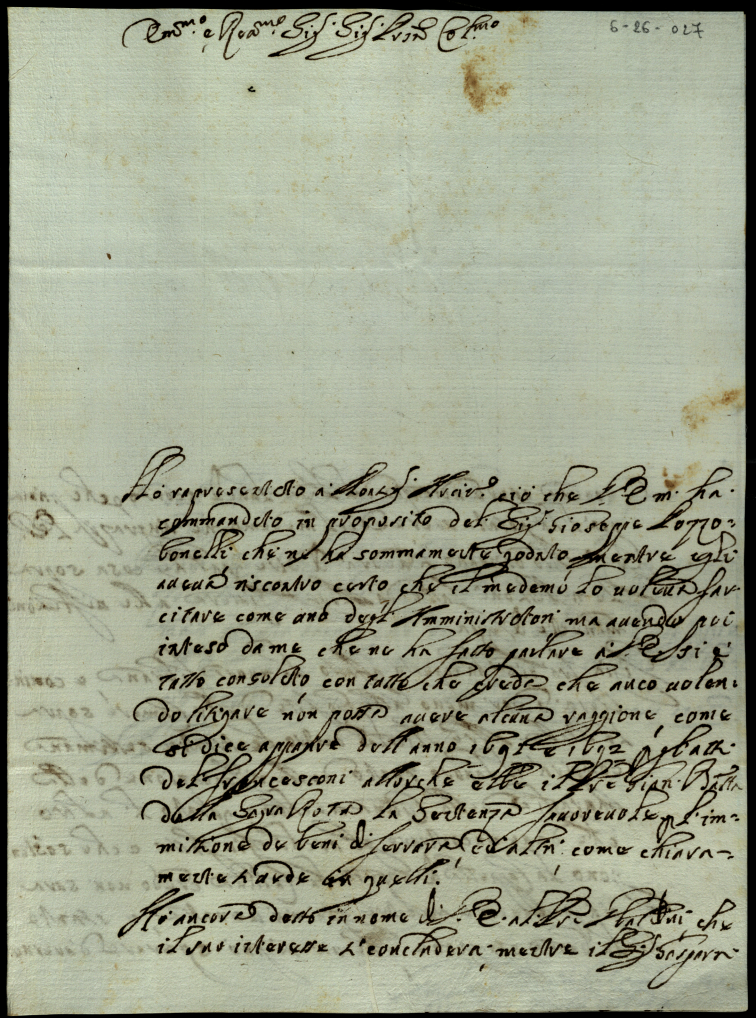 Em.mo e Rev.mo Sig.r Sig.r Pron Col.mo
6-26-027
Ho rapresentato a Mons.r Arciv.o ciò che V Em. ha
commandato in proposito del Sig.r Gioseppe Pozzo=
bonelli che ne ha sommamente goduto mentre egli
aveva riscontro certo che il medemo lo voleva
citare come uno degl'Amministratori ma avendo poi
inteso da me che ne ha fatto parlare a V E si è
tutto consolato con tutto che creda che anco volen=
do litigare non possa avere alcuna raggione, come
si dice appare dell'anno 1691 e 1692
del Francesconi allorche ebbe il Gian. Batta
dalla Sagra Rota la Sentenza favorevole p l'im=
missione de beni di Ferrara, ed altri come chiara=
mente vede in quelli.
Ho ancora detto in nome di V. E. al che
il suo interesse concluderà mentre il Sig.r Gasparo